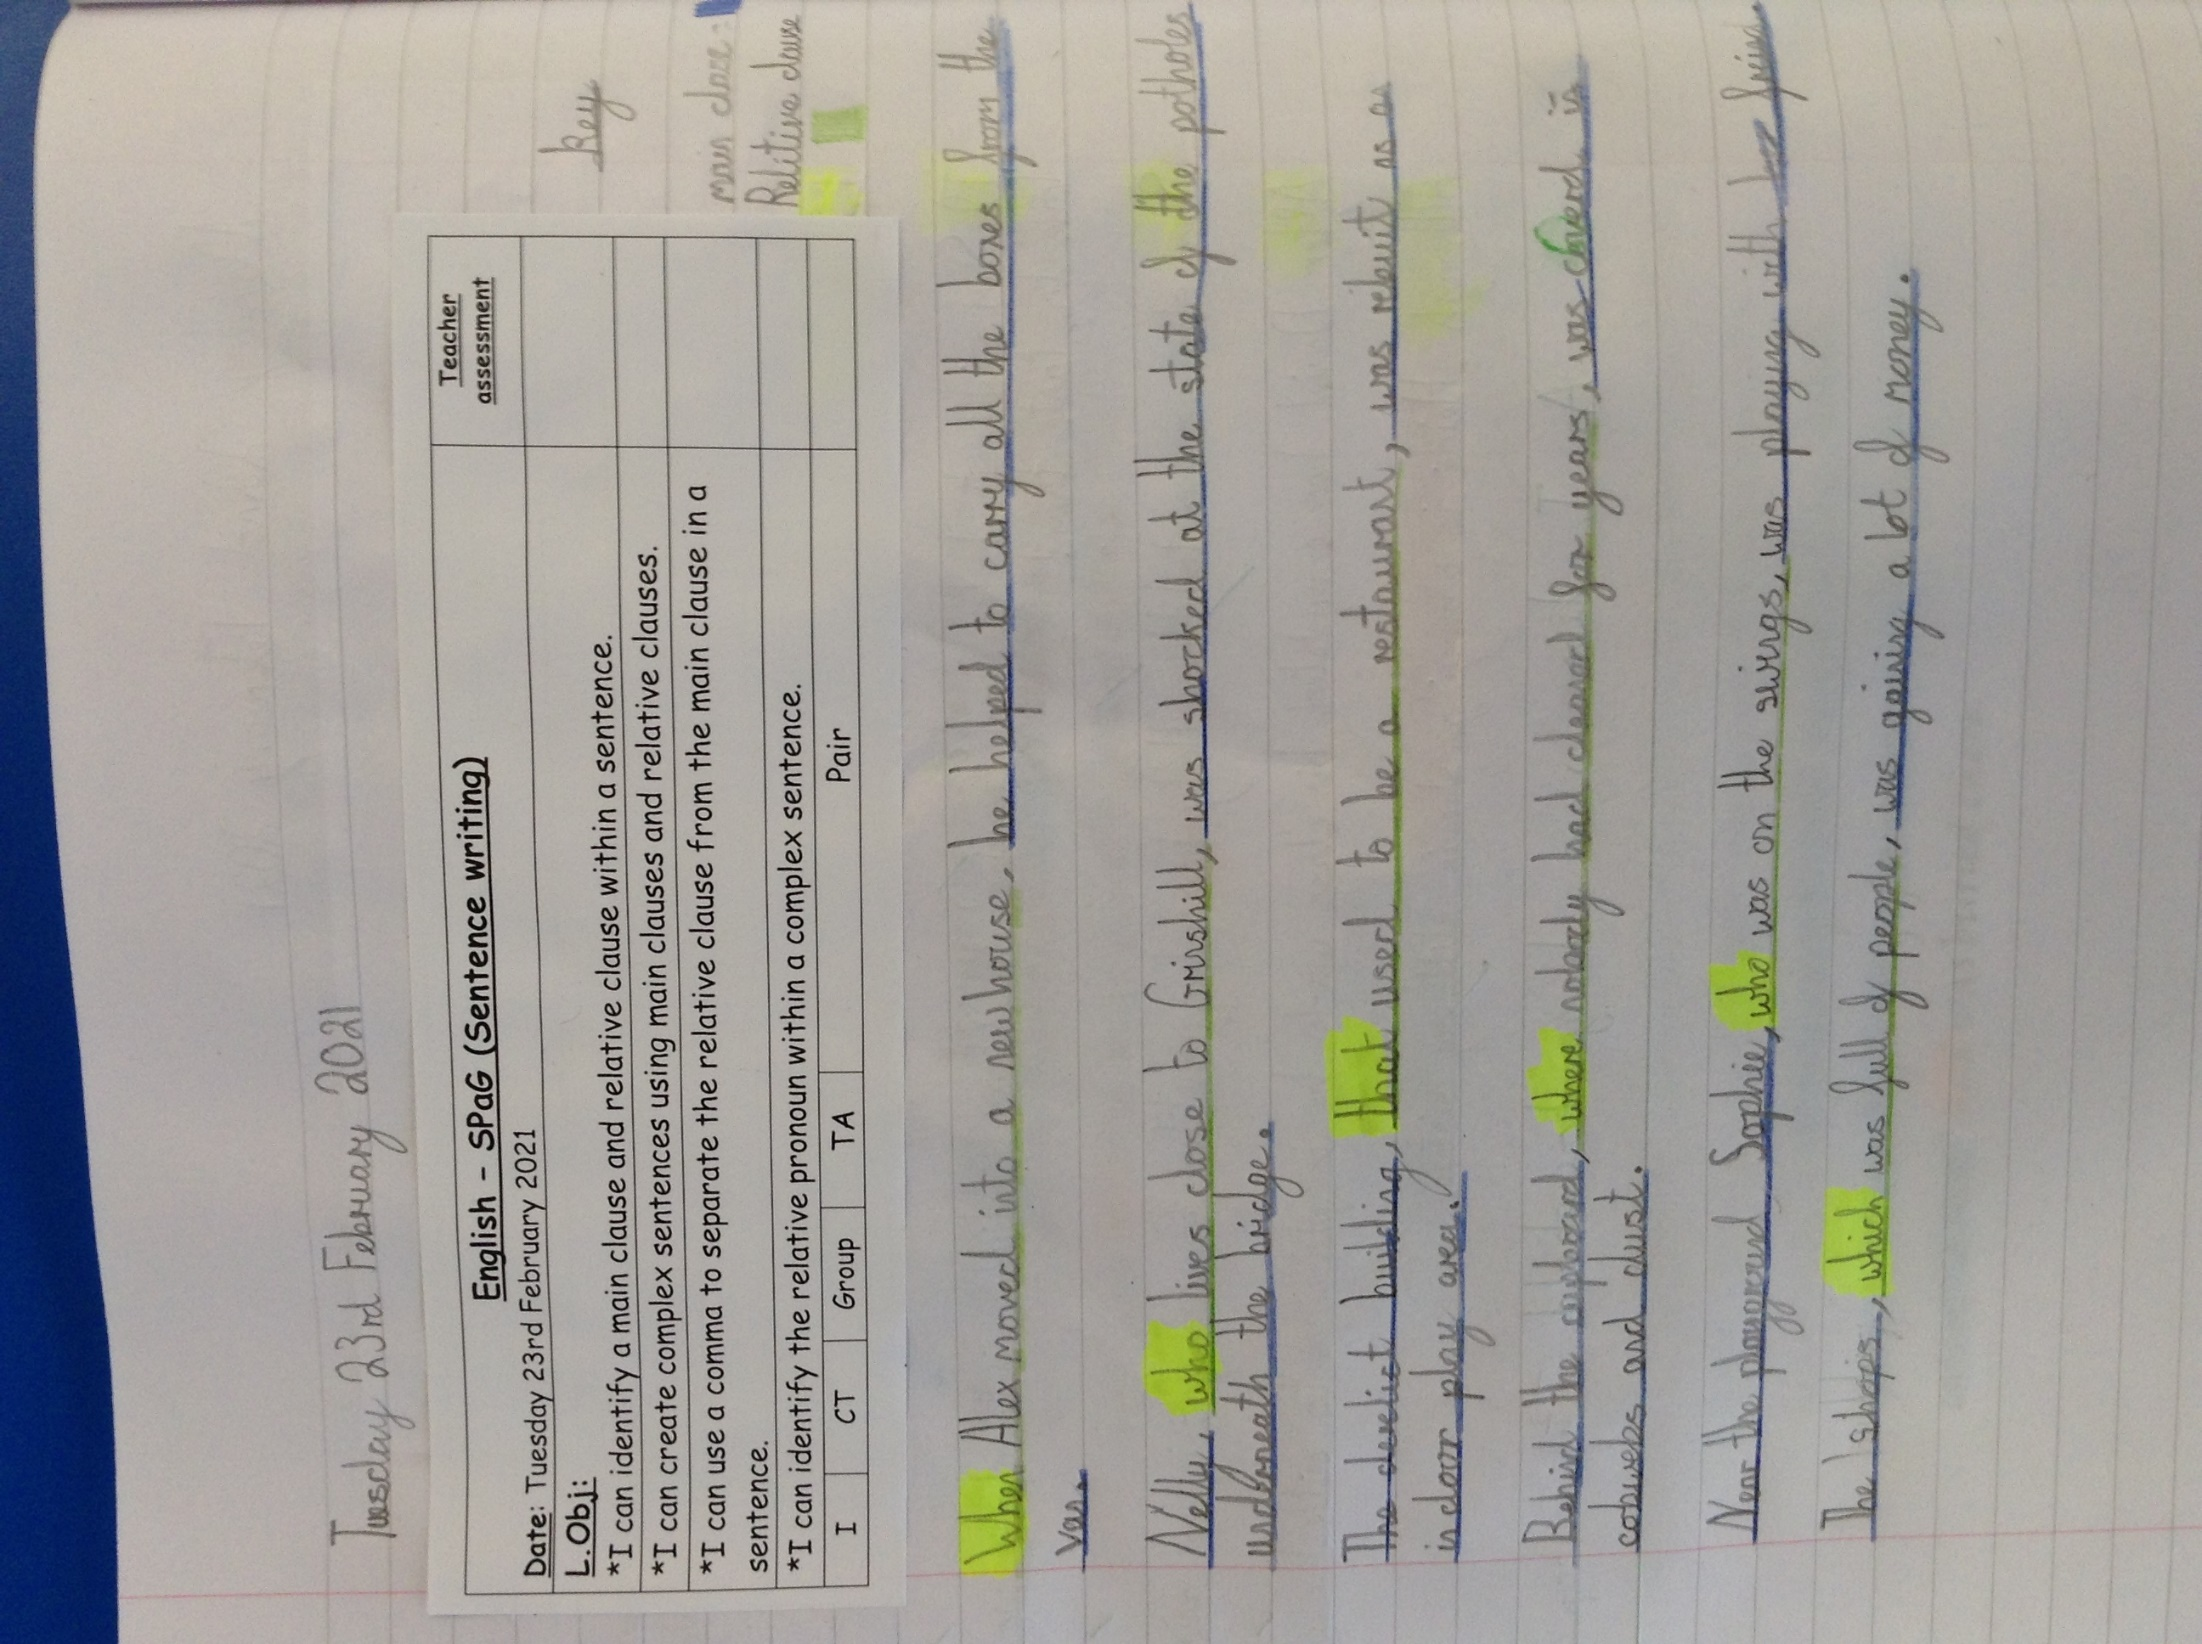 Tuesday 23rd February 2021
English - SPaG (Sentence writing)
Teacher assessment
Date: Tuesday 23rd February 2021
L.Obj:
*I can identify a main clause and relative clause within a sentence.
*I can create complex sentences using main clauses and relative clauses.
*I can use a comma to separate the relative clause from the main clause in a
sentence.
*I can identify the relative pronoun within a complex sentence.
I CT Group TA Pair
Key
main clase:
Relitive clause
When Alex moved into a new house, he helped to carry all the boxes from the
van.
Nelly, who lives close to Grinshill, was shocked at the state of the potholes
underneath the bridge.
The derelict building, that used to be a restaurant, was rebuit as an
indoor play area.
Behind the cupboard, where nobody had cleaned for years, was coverd in
cobwebs and dust.
Near the playground Sophie, who was on the swings, was playing with her friend.
The shops, which was full of people, was gaining a lot of money.